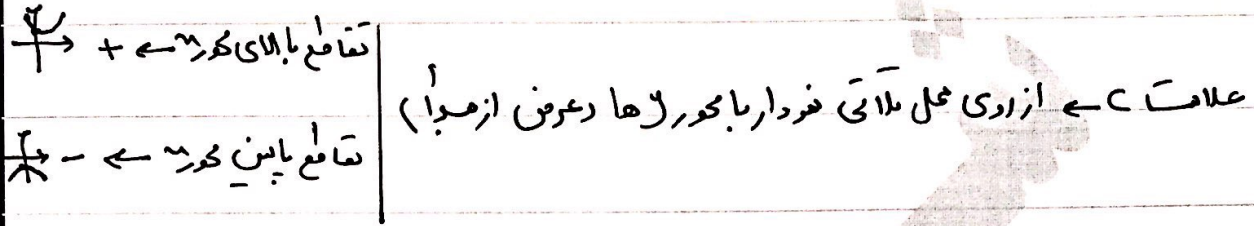 علامت c ← از روی محل تلاقی نمودار با محور y ها (عرض از مبدأ)
تقاطع بالای محور x ← +
تقاطع پایین محور x ← -